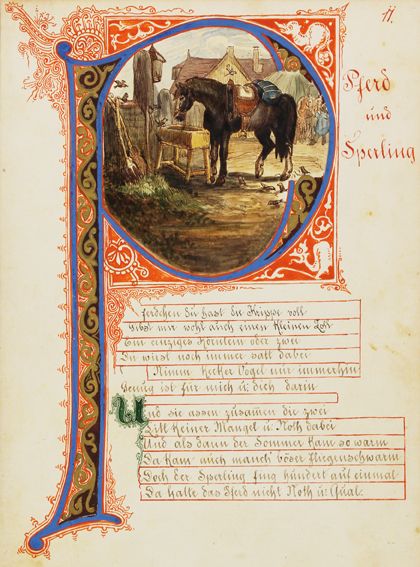 11.
Pferd
und
Sperling
Pferdchen Du hast die Krippe voll
Gibst mir wohl auch einen kleinen Zoll
Ein einziges Körnlein oder zwei
Du wirst noch immer satt dabei
Nimm kecker Vogel nur immerhin
Genug ist für mich u. dich darin
Und sie assen zusam̄en die zwei
Litt keiner Mangel u. Noth dabei
Und als dann der Sommer kam so warm
Da kam auch manch' böser Fliegenschwarm
Doch der Sperling fing hundert auf einmal
Da hatte das Pferd nicht Noth u. Qual.